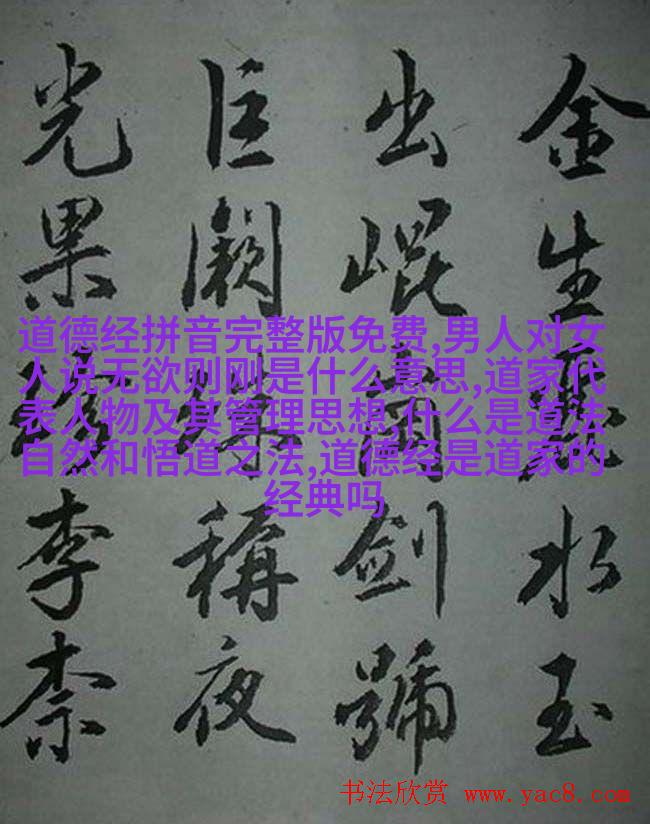 金生麗水玉
出崐岡劍號
巨闕珠稱夜
光果珍李柰
道德经拼音完整版免费,男人对女
人说无欲则刚是什么意思,道家代
表人物及其管理思想,什么是道法
自然和悟道之法,道德经是道家的
经典吗
书法欣赏 www.yac8.com